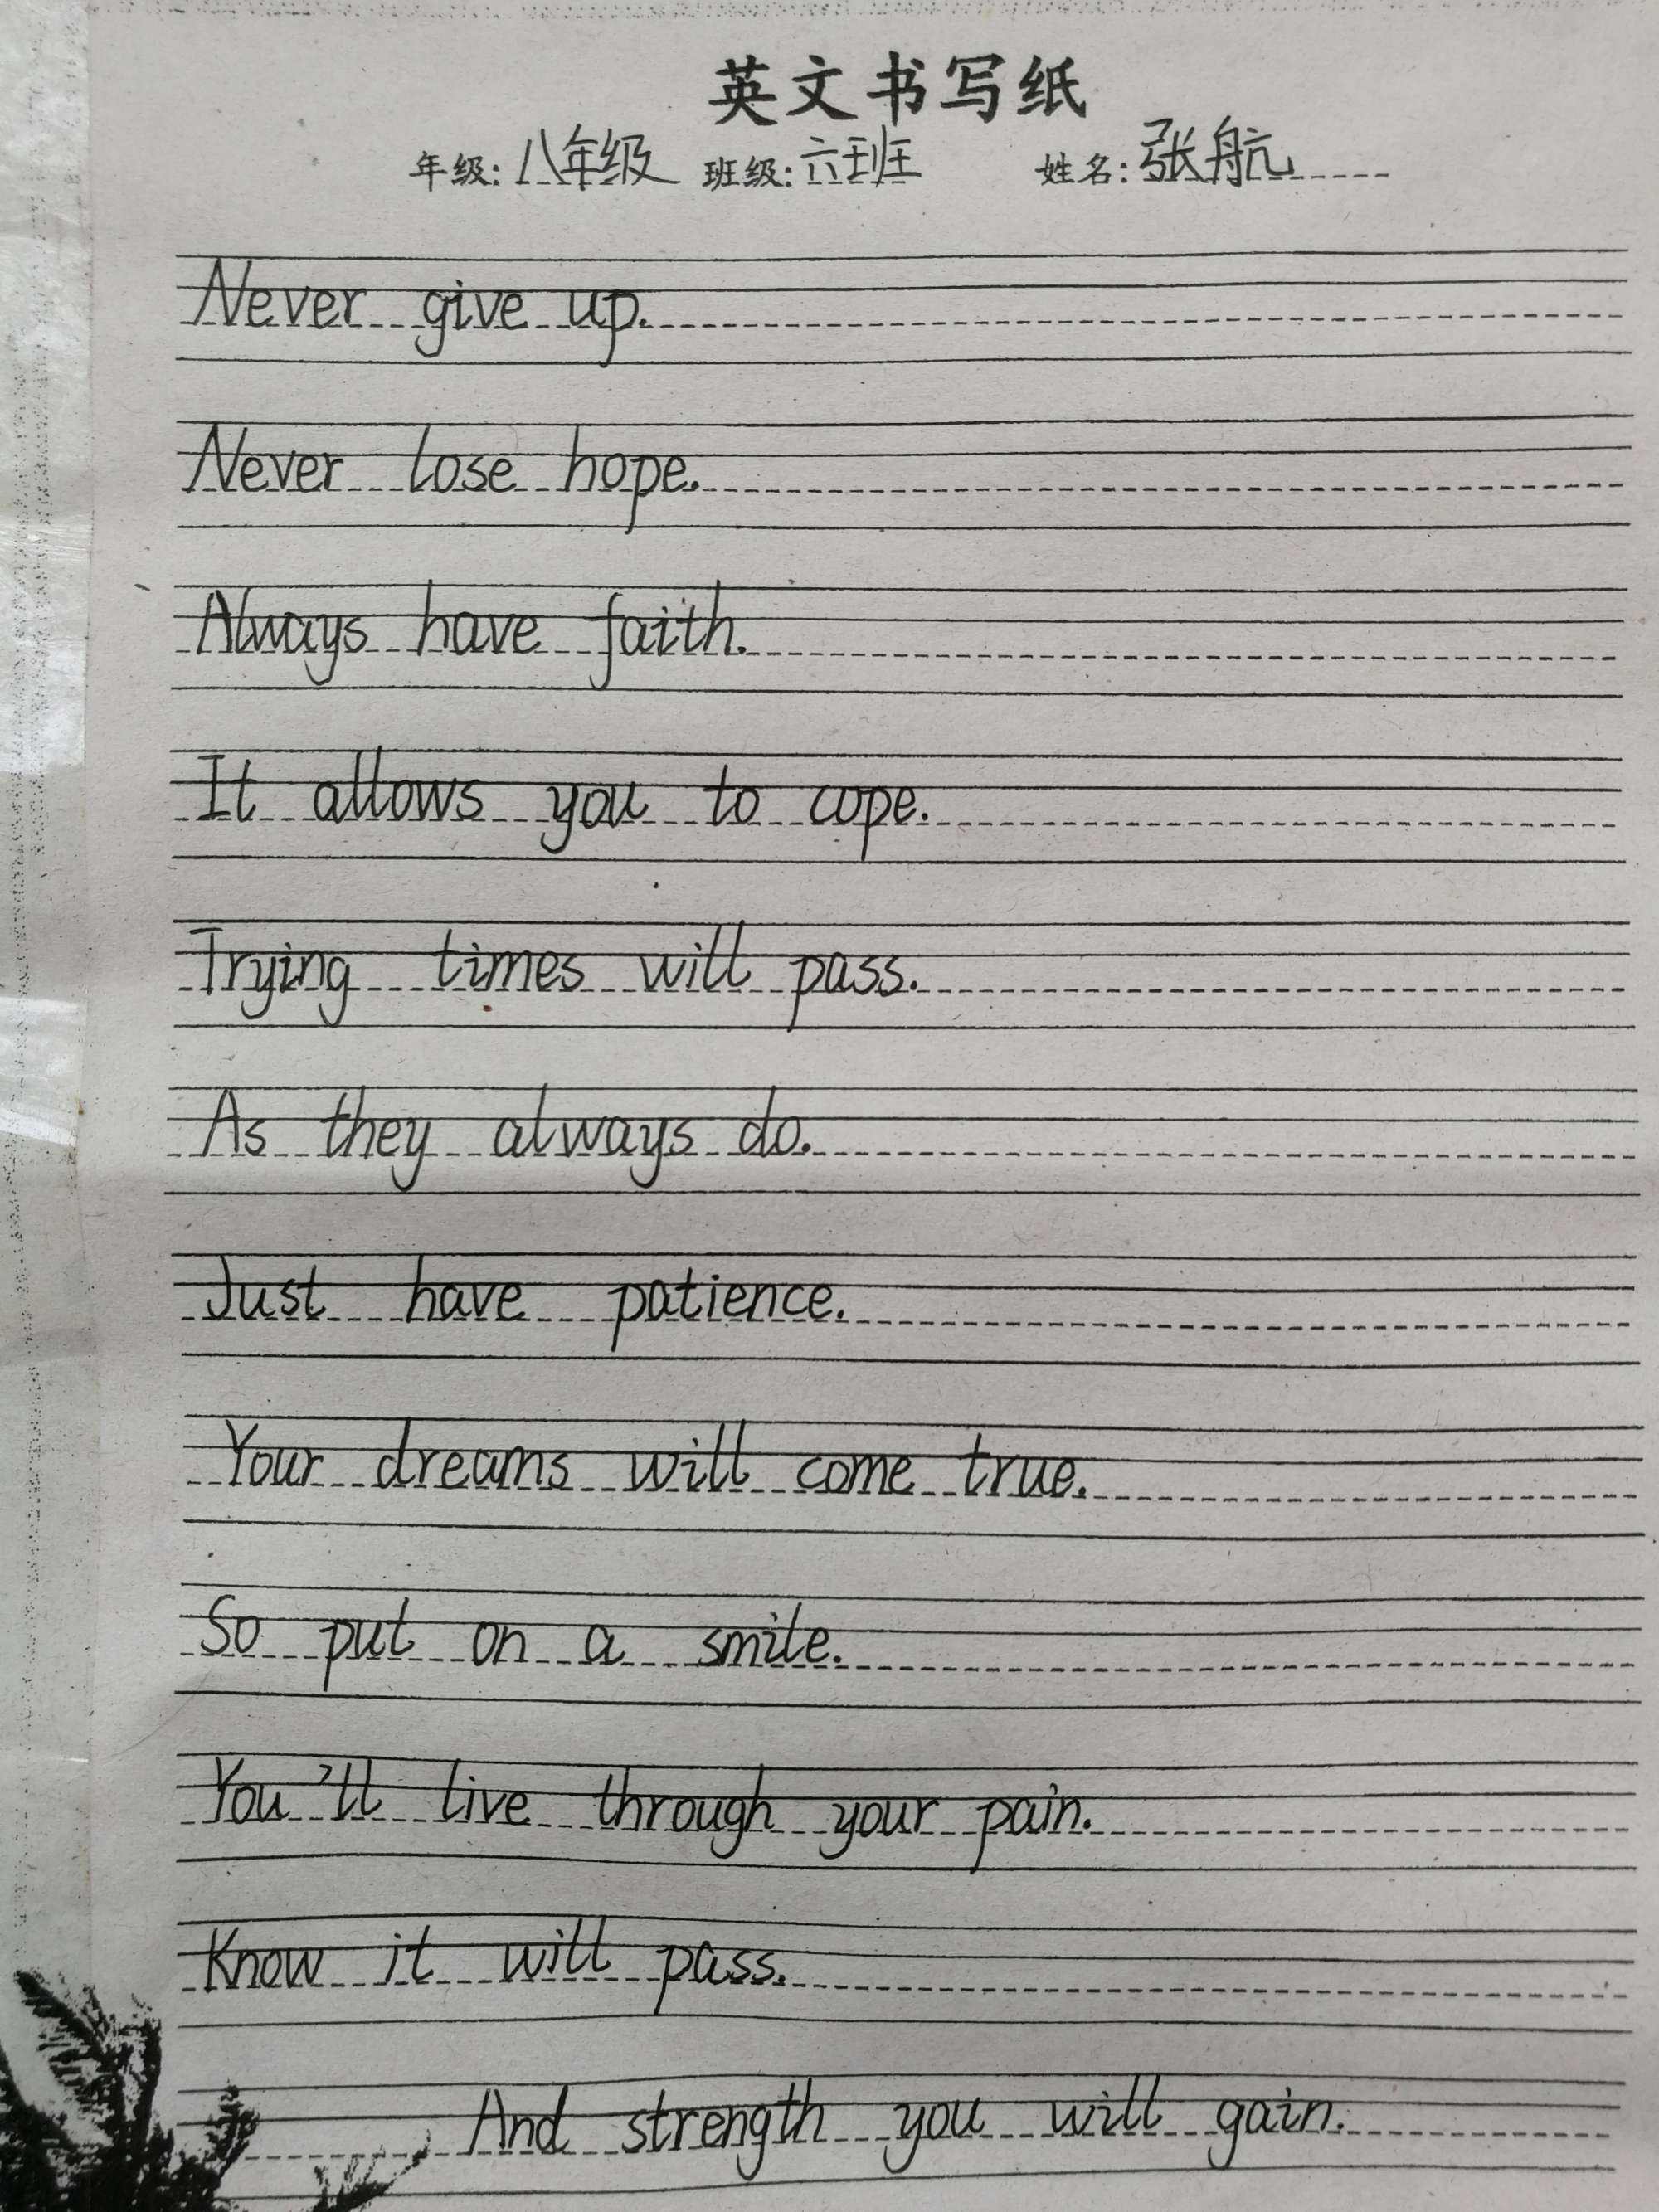 英文书写纸
年级: 八年级 班级: 六班 姓名: 张航
Never give up.
Never lose hope.
Always have faith.
It allows you to cope.
Trying times will pass.
As they always do.
Just have patience.
Your dreams will come true.
So put on a smile.
You'll live through your pain.
Know it will pass.
And strength you will gain.